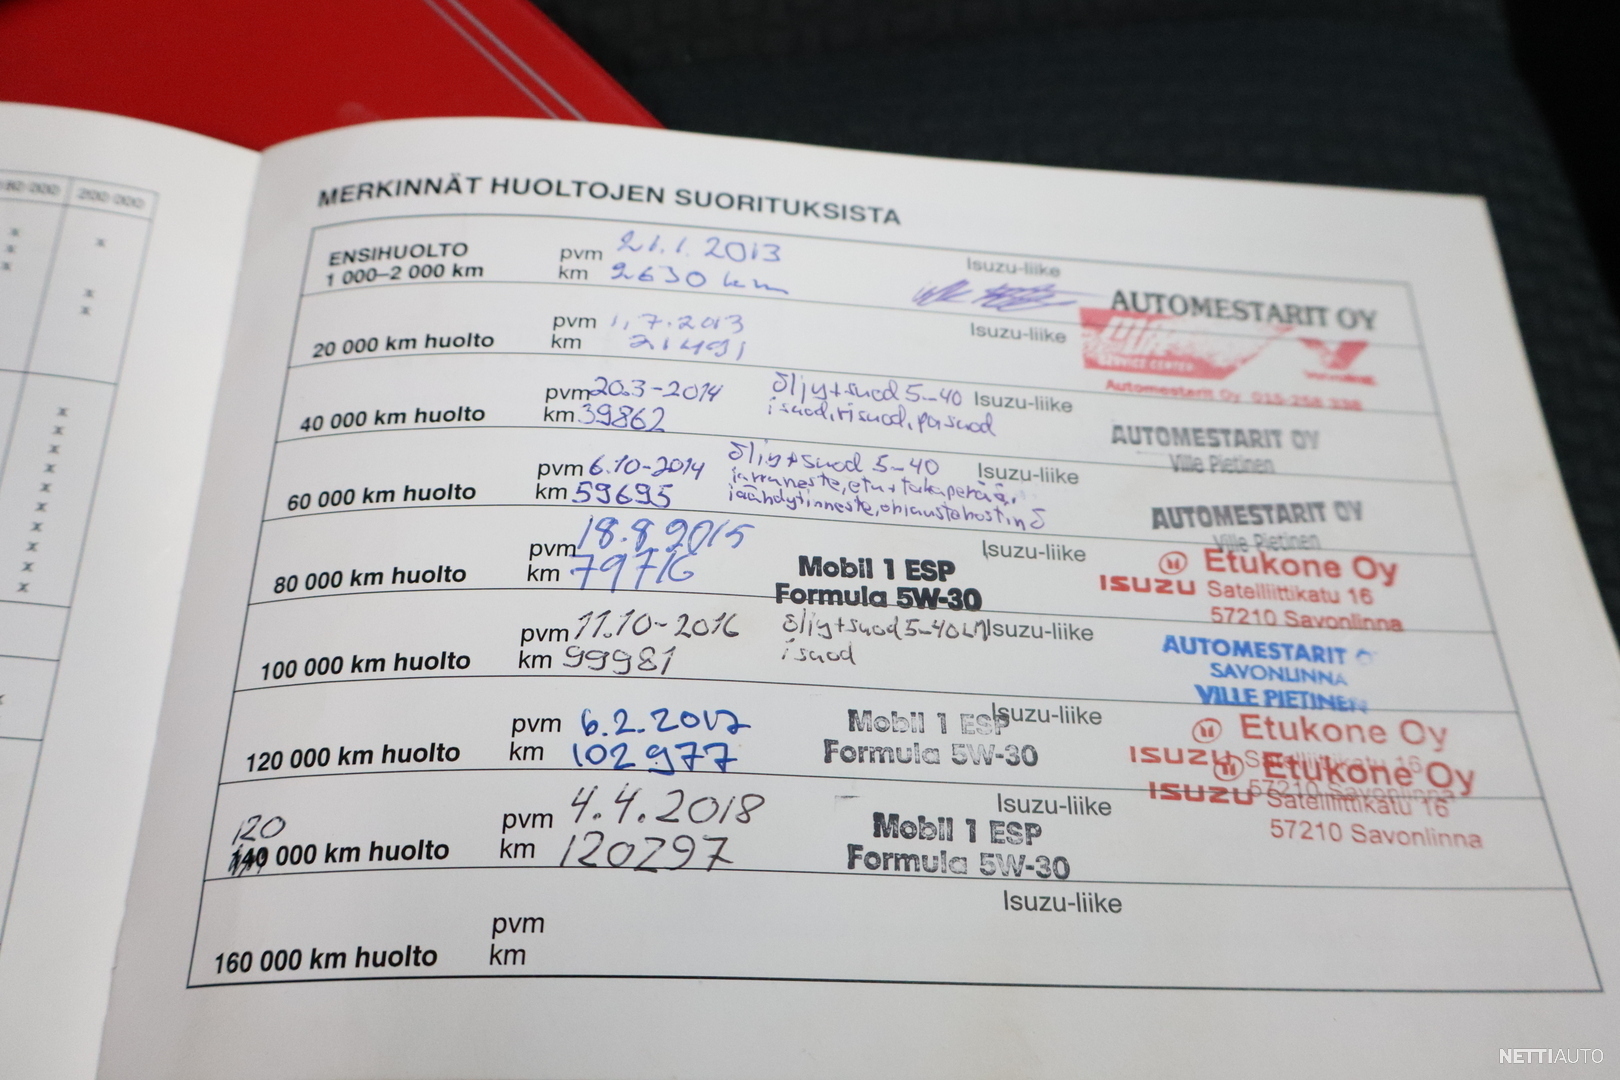 80 000 200 000
MERKINNÄT HUOLTOJEN SUORITUKSISTA
ENSIHUOLTO
1 000–2 000 km
pvm 21.1.2013
km 2630 km
Isuzu-liike
AUTOMESTARIT OY
20 000 km huolto
pvm 1.7.2013
km 21491
Isuzu-liike
SERVICE CENTER
Automestarit Oy 015-258 338
40 000 km huolto
pvm 20.3-2014
km 39862
öljy+suod 5-40
isuod, risuod, pasuod
Isuzu-liike
AUTOMESTARIT OY
Ville Pietinen
60 000 km huolto
pvm 6.10-2014
km 59695
öljy+suod 5-40
jarruneste, etu+takaperää,
jäähdytinneste, ohjaustehostin ö
Isuzu-liike
AUTOMESTARIT OY
Ville Pietinen
80 000 km huolto
pvm 18.8.2015
km 79716
Mobil 1 ESP
Formula 5W-30
Isuzu-liike
Etukone Oy
ISUZU Satelliittikatu 16
57210 Savonlinna
100 000 km huolto
pvm 11.10-2016
km 99981
öljy+suod 5-40 LM
isuod
Isuzu-liike
AUTOMESTARIT O
SAVONLINNA
VILLE PIETINEN
120 000 km huolto
pvm 6.2.2017
km 102977
Mobil 1 ESP
Formula 5W-30
Isuzu-liike
Etukone Oy
ISUZU Satelliittikatu 16
57210 Savonlinna
120
140 000 km huolto
pvm 4.4.2018
km 120297
Mobil 1 ESP
Formula 5W-30
Isuzu-liike
Etukone Oy
ISUZU Satelliittikatu 16
57210 Savonlinna
160 000 km huolto
pvm
km
Isuzu-liike
NETTIAUTO